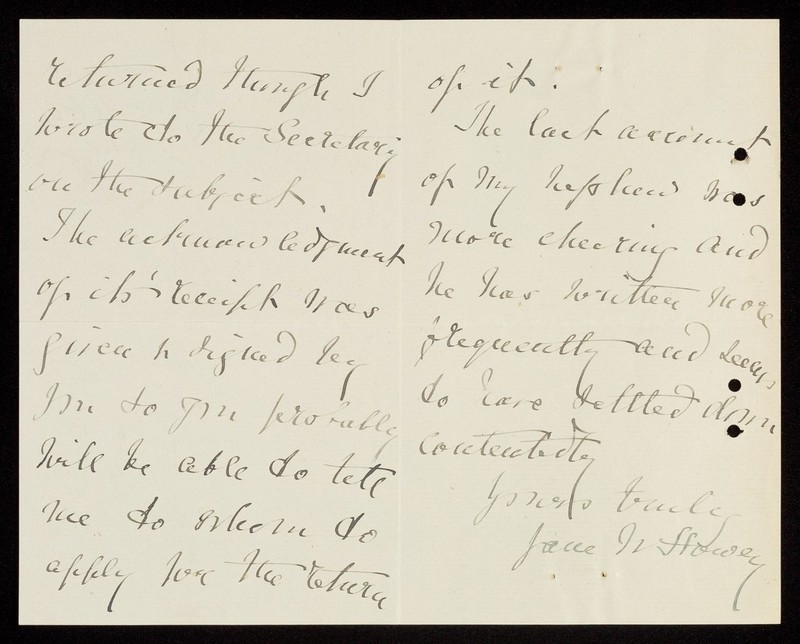 returned though I
wrote to the Secretary
on the subject.
The acknowledgment
of its receipt was
given & signed by
you so you probably
will be able to tell
me to whom to
apply for the return
of it.
The last account
of my nephew was
more cheering and
he has written more
frequently and seems
to have settled down
contentedly
Yours truly
Jane